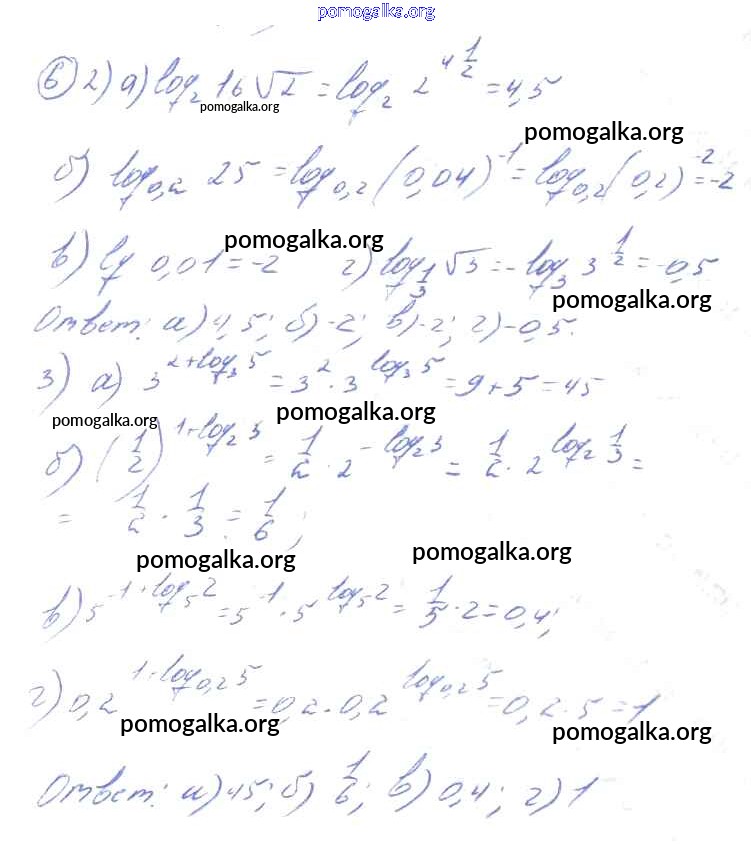 pomogalka.org
6) 2) а) log₂ 16√2 = log₂ 2^(4 1/2) = 4,5
pomogalka.org
pomogalka.org
б) log₀,₂ 25 = log₀,₂ (0,04)⁻¹ = log₀,₂ (0,2)⁻² = -2
в) lg 0,01 = -2 г) log_(1/3) √3 = -log₃ 3^(1/2) = -0,5
pomogalka.org
pomogalka.org
Ответ: а) 4,5; б) -2; в) -2; г) -0,5.
3) а) 3^(2+log₃5) = 3² · 3^(log₃5) = 9 + 5 = 45
pomogalka.org
pomogalka.org
б) (1/2)^(1+log₂3) = 1/2 · 2^(-log₂3) = 1/2 · 2^(log₂ 1/3) =
= 1/2 · 1/3 = 1/6;
pomogalka.org
pomogalka.org
в) 5^(-1+log₅2) = 5⁻¹ · 5^(log₅2) = 1/5 · 2 = 0,4;
г) 0,2^(1+log₀,₂5) = 0,2 · 0,2^(log₀,₂5) = 0,2 · 5 = 1
pomogalka.org
pomogalka.org
Ответ: а) 45; б) 1/6; в) 0,4; г) 1